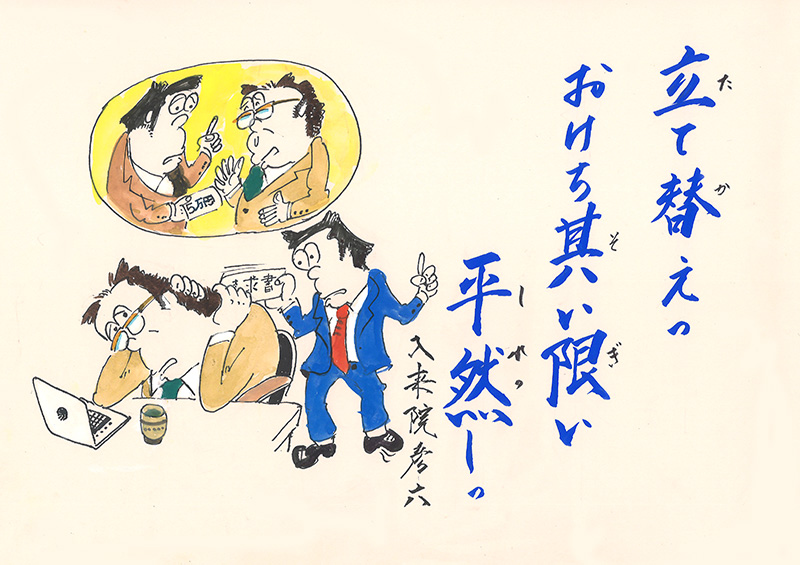 立て替えっ
おけち其い限い
平然しっ
入来院彦六
5万円
求書